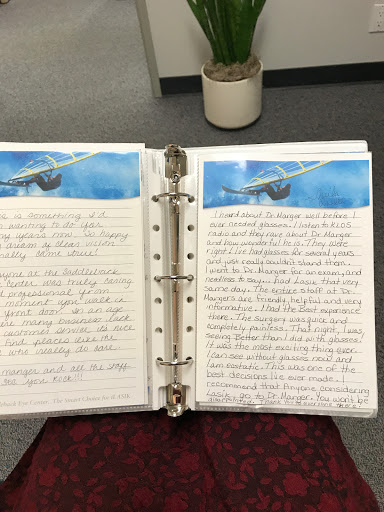 is something I'd
wanting to do for
years now. So happy
dream of clear vision
finally come true!
at the Saddleback
Center was truly caring
professional from
moment you walk in
front door. In an age
many business lack
customer service its nice
find places like the
who really do care.
manger and all the staff
you Rock!!!
Eye Center. The Smart Choice for iLASIK
I heard about Dr. Manger well before I
ever needed glasses. I listen to KLOS
radio and they rave about Dr. Manger
and how wonderful he is. They were
right. I've had glasses for several years
and just really couldn't stand them.
I went to Dr. Manger for an exam, and
needless to say... had Lasik that very
same day. The entire staff at Dr.
Mangers are friendly, helpful and very
informative. I had the Best experience
there. The surgery was quick and
completely painless. That night, I was
seeing Better than I did with glasses.
It was the most exciting thing ever.
I can see without glasses now and
I am ecstatic. This was one of the
best decisions I've ever made. I
recommend that Anyone considering
Lasik, go to Dr. Manger. You won't be